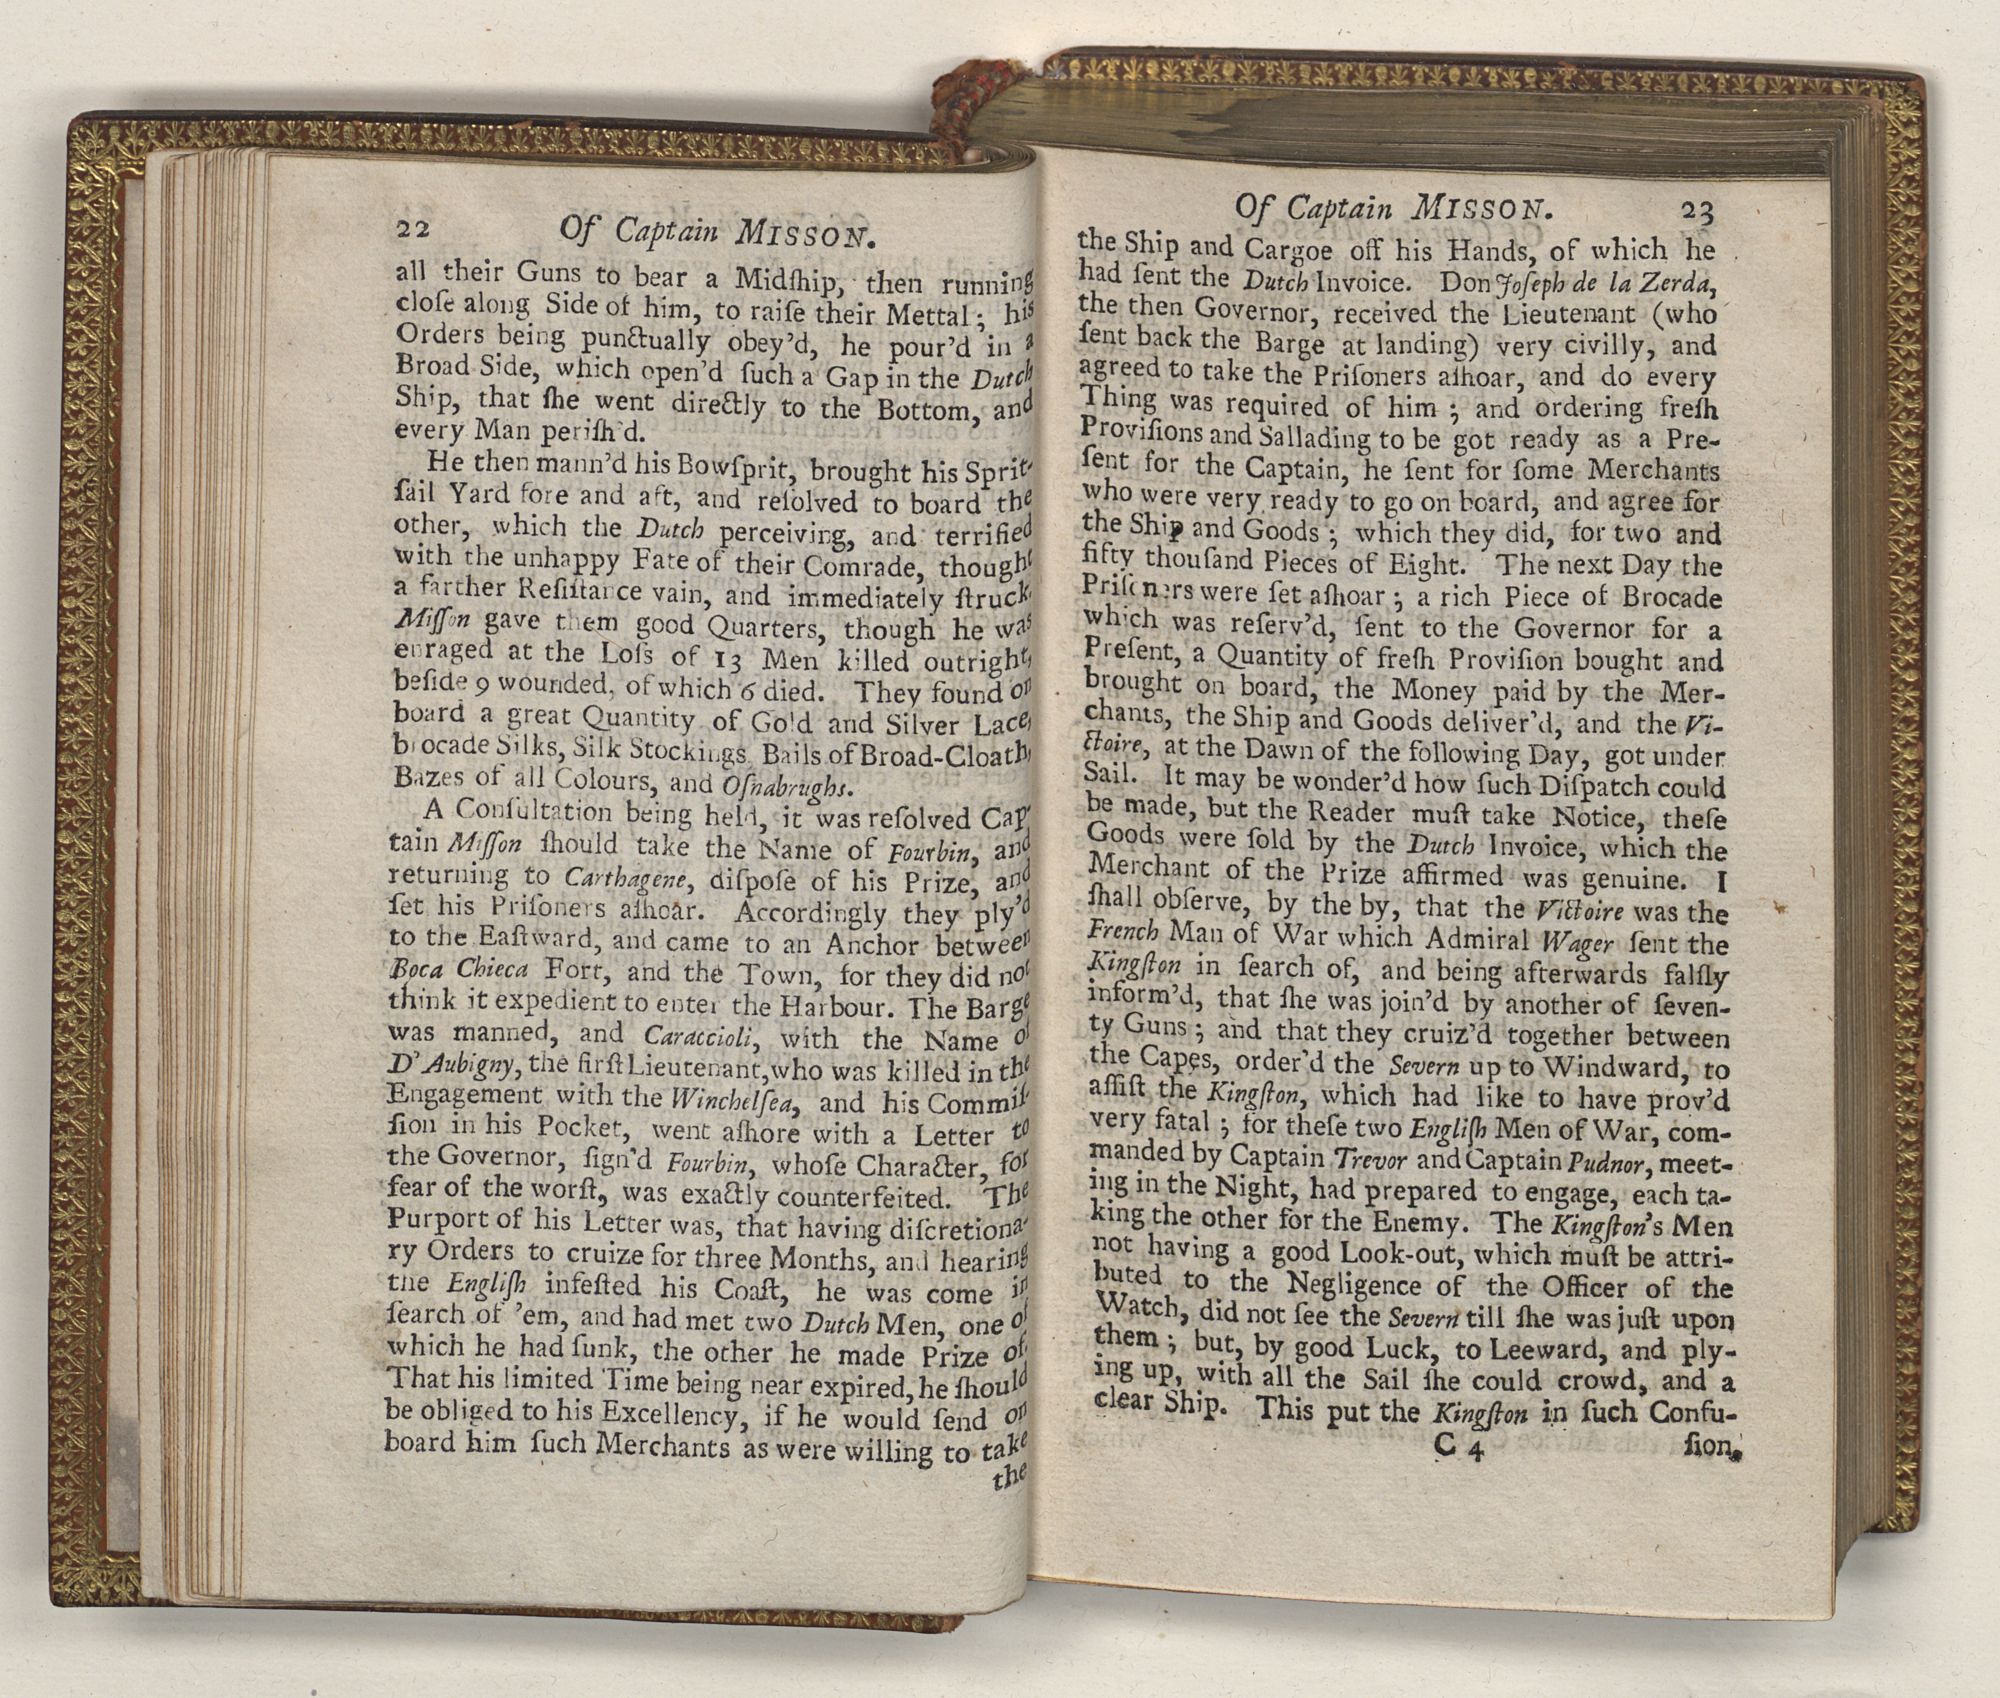 22 Of Captain MISSON.
all their Guns to bear a Midſhip, then running
cloſe along Side of him, to raiſe their Mettal; his
Orders being punctually obey'd, he pour'd in a
Broad Side, which open'd ſuch a Gap in the Dutch
Ship, that ſhe went directly to the Bottom, and
every Man periſh'd.
He then mann'd his Bowſprit, brought his Sprit-
ſail Yard fore and aft, and reſolved to board the
other, which the Dutch perceiving, and terrified
with the unhappy Fate of their Comrade, thought
a farther Reſiſtance vain, and immediately ſtruck.
Miſſon gave them good Quarters, though he was
enraged at the Loſs of 13 Men killed outright,
beſide 9 wounded, of which 6 died. They found on
board a great Quantity of Gold and Silver Lace,
brocade Silks, Silk Stockings, Bails of Broad-Cloath,
Bazes of all Colours, and Oſnabrughs.
A Conſultation being held, it was reſolved Cap-
tain Miſſon ſhould take the Name of Fourbin, and
returning to Carthagene, diſpoſe of his Prize, and
ſet his Priſoners aſhoar. Accordingly they ply'd
to the Eaſtward, and came to an Anchor between
Boca Chieca Fort, and the Town, for they did not
think it expedient to enter the Harbour. The Barge
was manned, and Caraccioli, with the Name of
D'Aubigny, the firſt Lieutenant, who was killed in the
Engagement with the Winchelſea, and his Commiſ-
ſion in his Pocket, went aſhore with a Letter to
the Governor, ſign'd Fourbin, whoſe Character, for
fear of the worſt, was exactly counterfeited. The
Purport of his Letter was, that having diſcretiona-
ry Orders to cruize for three Months, and hearing
the Engliſh infeſted his Coaſt, he was come in
ſearch of 'em, and had met two Dutch Men, one of
which he had ſunk, the other he made Prize of.
That his limited Time being near expired, he ſhould
be obliged to his Excellency, if he would ſend on
board him ſuch Merchants as were willing to take
the
Of Captain MISSON. 23
the Ship and Cargoe off his Hands, of which he
had ſent the Dutch Invoice. Don Joſeph de la Zerda,
the then Governor, received the Lieutenant (who
ſent back the Barge at landing) very civilly, and
agreed to take the Priſoners aſhoar, and do every
Thing was required of him; and ordering freſh
Proviſions and Sallading to be got ready as a Pre-
ſent for the Captain, he ſent for ſome Merchants
who were very ready to go on board, and agree for
the Ship and Goods; which they did, for two and
fifty thouſand Pieces of Eight. The next Day the
Priſoners were ſet aſhoar; a rich Piece of Brocade
which was reſerv'd, ſent to the Governor for a
Preſent, a Quantity of freſh Proviſion bought and
brought on board, the Money paid by the Mer-
chants, the Ship and Goods deliver'd, and the Vi-
ctoire, at the Dawn of the following Day, got under
Sail. It may be wonder'd how ſuch Diſpatch could
be made, but the Reader muſt take Notice, theſe
Goods were ſold by the Dutch Invoice, which the
Merchant of the Prize affirmed was genuine. I
ſhall obſerve, by the by, that the Victoire was the
French Man of War which Admiral Wager ſent the
Kingſton in ſearch of, and being afterwards falſly
inform'd, that ſhe was join'd by another of ſeven-
ty Guns; and that they cruiz'd together between
the Capes, order'd the Severn up to Windward, to
aſſiſt the Kingſton, which had like to have prov'd
very fatal; for theſe two Engliſh Men of War, com-
manded by Captain Trevor and Captain Pudnor, meet-
ing in the Night, had prepared to engage, each ta-
king the other for the Enemy. The Kingſton's Men
not having a good Look-out, which muſt be attri-
buted to the Negligence of the Officer of the
Watch, did not ſee the Severn till ſhe was juſt upon
them; but, by good Luck, to Leeward, and ply-
ing up, with all the Sail ſhe could crowd, and a
clear Ship. This put the Kingſton in ſuch Confu-
C 4 ſion,